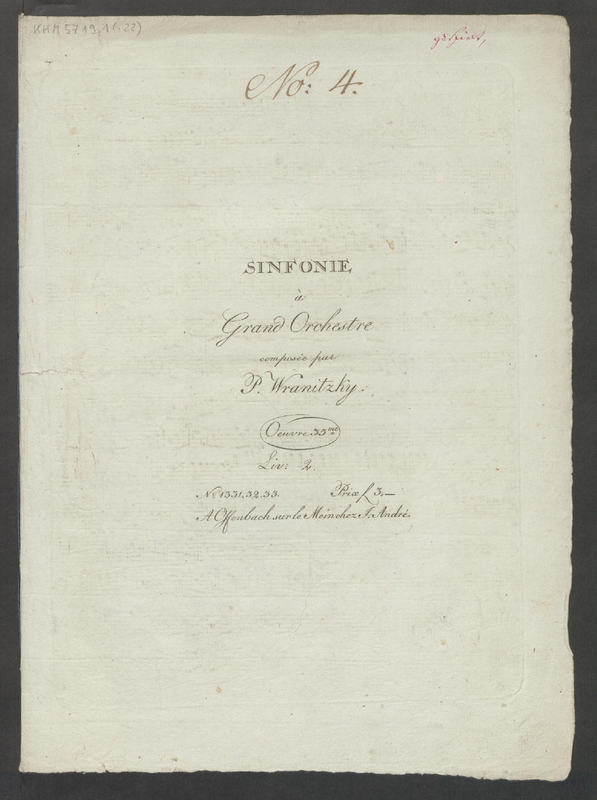 KHM 5719,1(22)
gespielt,
No: 4.
SINFONIE
à
Grand Orchestre
composée par
P. Wranitzky.
Oeuvre 33me
Liv: 2.
No 1331,32,33. Prix f 3.—
A Offenbach sur le Mein chez J. André.